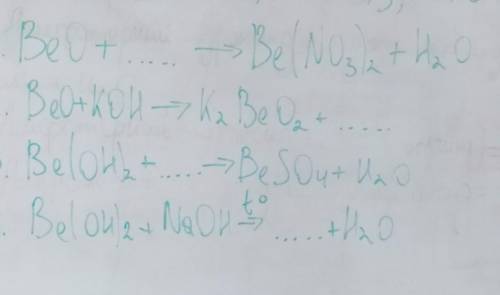 . BeO + ..... → Be(NO₃)₂ + H₂O
. BeO + KOH → K₂BeO₂ + .....
. Be(OH)₂ + ..... → BeSO₄ + H₂O
. Be(OH)₂ + NaOH t° ⇒ ..... + H₂O